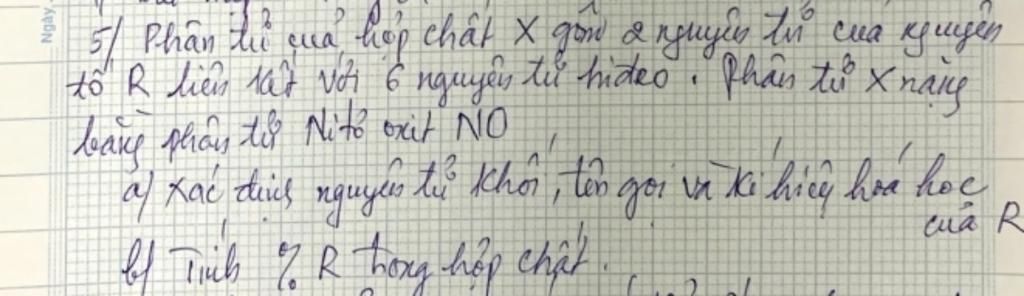 Ngày
5/ Phân tử của hợp chất X gồm 2 nguyên tử của nguyên
tố R liên kết với 6 nguyên tử hiđro. Phân tử X nặng
bằng phân tử Nitơ oxit NO
a) Xác định nguyên tử khối, tên gọi và kí hiệu hoá học
của R
b) Tính % R trong hợp chất.